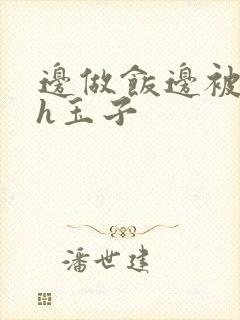 邊做飯邊被
h玉子
潘世建